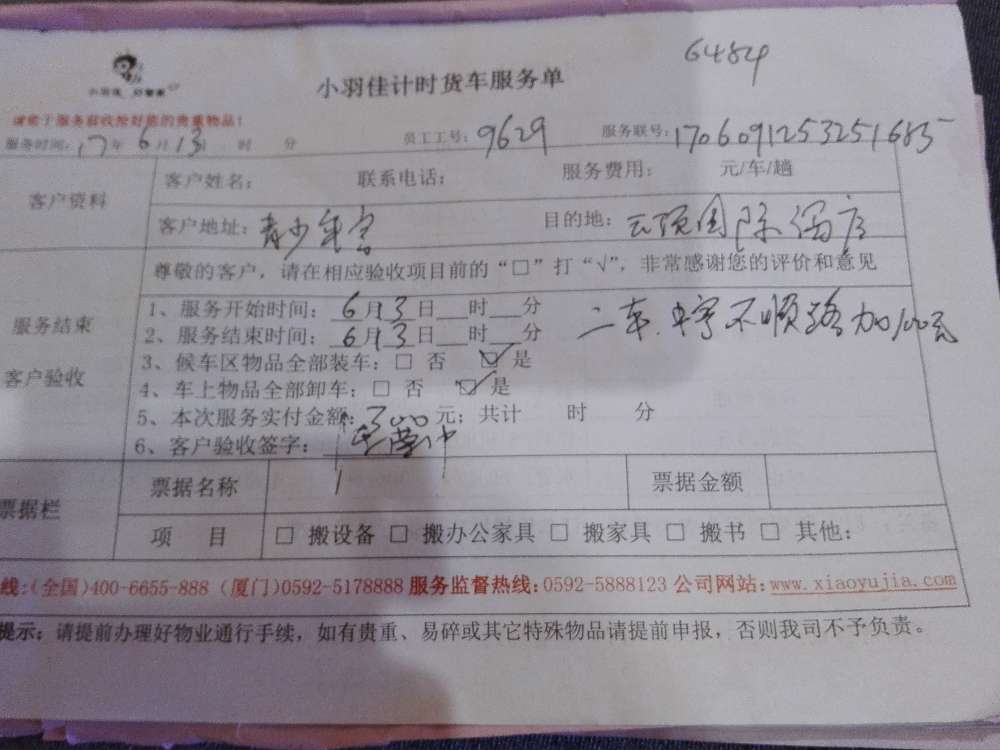 6484
小羽佳计时货车服务单
小羽佳 好管家
请给于服务前收拾好您的贵重物品!
服务时间:17年6月13日 时 分 员工工号:9629 服务联号:1706091253251685
客户资料 客户姓名: 联系电话: 服务费用: 元/车/趟
客户地址:青少年宫 目的地:云顶国际酒店
尊敬的客户,请在相应验收项目前的“□”打“√”,非常感谢您的评价和意见
服务结束
客户验收
1、服务开始时间:6月3日 时 分
2、服务结束时间:6月3日 时 分
二车 不顺路加100元
3、候车区物品全部装车:□ 否 ☑ 是
4、车上物品全部卸车:□ 否 ☑ 是
5、本次服务实付金额:700元;共计 时 分
6、客户验收签字:
票据栏 票据名称 票据金额
项 目 □ 搬设备 □ 搬办公家具 □ 搬家具 □ 搬书 □ 其他:
线:(全国)400-6655-888 (厦门)0592-5178888 服务监督热线:0592-5888123 公司网站:www.xiaoyujia.com
提示:请提前办理好物业通行手续,如有贵重、易碎或其它特殊物品请提前申报,否则我司不予负责。